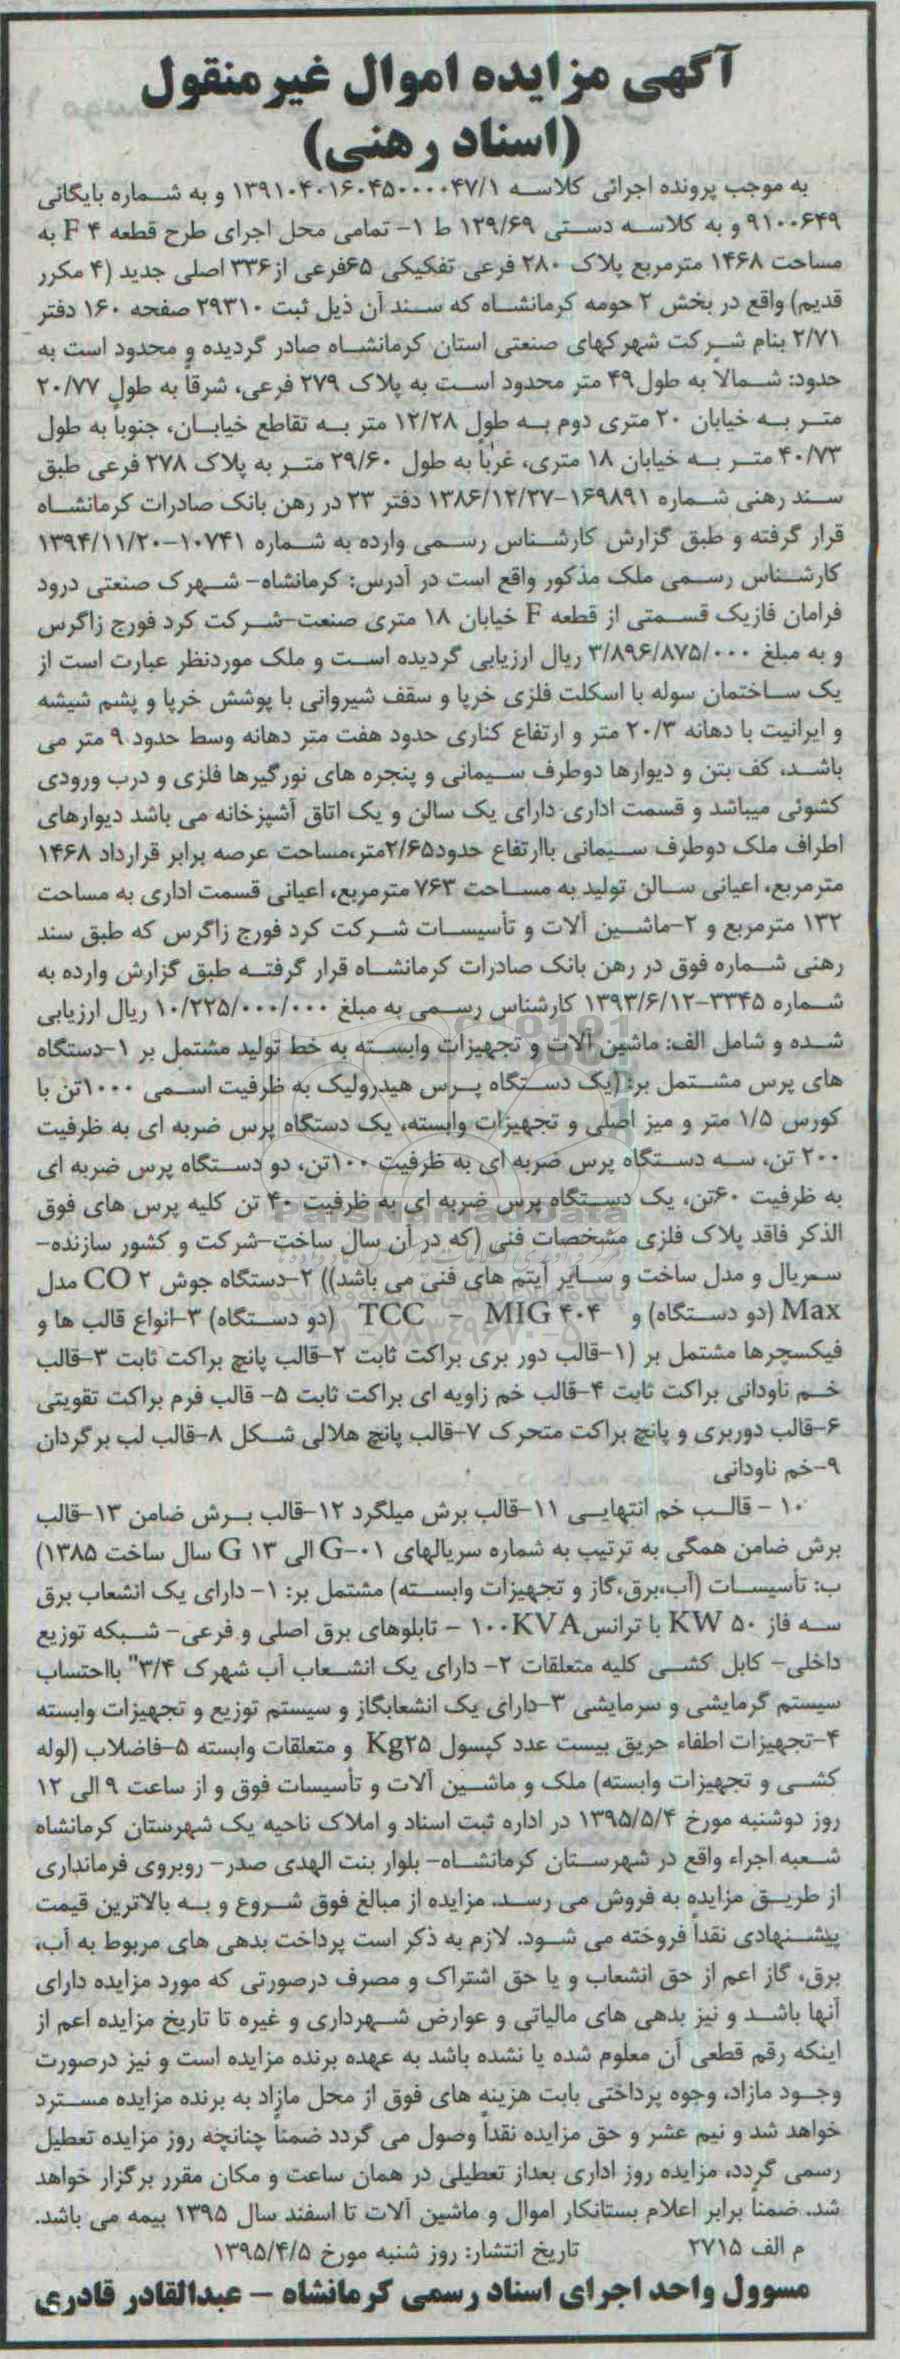 آگهی مزایده اموال غیرمنقول
(اسناد رهنی)
به موجب پرونده اجرائی کلاسه ۱۳۹۱۰۴۰۱۶۰۴۵۰۰۰۰۴۷/۱ و به شماره بایگانی
۹۱۰۰۶۴۹ و به کلاسه دستی ۱۲۹/۶۹ ط ۱- تمامی محل اجرای طرح قطعه F ۴ به
مساحت ۱۴۶۸ مترمربع پلاک ۲۸۰ فرعی تفکیکی ۶۵فرعی از۳۳۶ اصلی جدید (۴ مکرر
قدیم) واقع در بخش ۲ حومه کرمانشاه که سند آن ذیل ثبت ۲۹۳۱۰ صفحه ۱۶۰ دفتر
۲/۷۱ بنام شرکت شهرکهای صنعتی استان کرمانشاه صادر گردیده و محدود است به
حدود: شمالاً به طول۴۹ متر محدود است به پلاک ۲۷۹ فرعی، شرقاً به طول ۲۰/۷۷
متر به خیابان ۲۰ متری دوم به طول ۱۲/۲۸ متر به تقاطع خیابان، جنوباً به طول
۴۰/۷۳ متر به خیابان ۱۸ متری، غرباً به طول ۲۹/۶۰ متر به پلاک ۲۷۸ فرعی طبق
سند رهنی شماره ۱۶۹۸۹۱-۱۳۸۶/۱۲/۲۷ دفتر ۲۳ در رهن بانک صادرات کرمانشاه
قرار گرفته و طبق گزارش کارشناس رسمی وارده به شماره ۱۰۷۴۱-۱۳۹۴/۱۱/۲۰
کارشناس رسمی ملک مذکور واقع است در آدرس: کرمانشاه- شهرک صنعتی درود
فرامان فازیک قسمتی از قطعه F خیابان ۱۸ متری صنعت-شرکت کرد فورج زاگرس
و به مبلغ ۳/۸۹۶/۸۷۵/۰۰۰ ریال ارزیابی گردیده است و ملک موردنظر عبارت است از
یک ساختمان سوله با اسکلت فلزی خرپا و سقف شیروانی با پوشش خرپا و پشم شیشه
و ایرانیت با دهانه ۲۰/۳ متر و ارتفاع کناری حدود هفت متر دهانه وسط حدود ۹ متر می
باشد، کف بتن و دیوارها دوطرف سیمانی و پنجره های نورگیرها فلزی و درب ورودی
کشوئی میباشد و قسمت اداری دارای یک سالن و یک اتاق آشپزخانه می باشد دیوارهای
اطراف ملک دوطرف سیمانی باارتفاع حدود۲/۶۵متر،مساحت عرصه برابر قرارداد ۱۴۶۸
مترمربع، اعیانی سالن تولید به مساحت ۷۶۳ مترمربع، اعیانی قسمت اداری به مساحت
۱۳۲ مترمربع و ۲-ماشین آلات و تأسیسات شرکت کرد فورج زاگرس که طبق سند
رهنی شماره فوق در رهن بانک صادرات کرمانشاه قرار گرفته طبق گزارش وارده به
شماره ۳۳۴۵-۱۳۹۳/۶/۱۲ کارشناس رسمی به مبلغ ۱۰/۲۲۵/۰۰۰/۰۰۰ ریال ارزیابی
شده و شامل الف: ماشین آلات و تجهیزات وابسته به خط تولید مشتمل بر ۱-دستگاه
های پرس مشتمل بر: (یک دستگاه پرس هیدرولیک به ظرفیت اسمی ۱۰۰۰تن با
کورس ۱/۵ متر و میز اصلی و تجهیزات وابسته، یک دستگاه پرس ضربه ای به ظرفیت
۲۰۰ تن، سه دستگاه پرس ضربه ای به ظرفیت ۱۰۰تن، دو دستگاه پرس ضربه ای
به ظرفیت ۶۰تن، یک دستگاه پرس ضربه ای به ظرفیت ۴۰ تن کلیه پرس های فوق
الذکر فاقد پلاک فلزی مشخصات فنی (که در آن سال ساخت-شرکت و کشور سازنده-
سریال و مدل ساخت و سایر آیتم های فنی می باشد)) ۲-دستگاه جوش CO ۲ مدل
Max (دو دستگاه) و TCC - MIG ۴۰۴ (دو دستگاه) ۳-انواع قالب ها و
فیکسچرها مشتمل بر (۱-قالب دور بری براکت ثابت ۲-قالب پانچ براکت ثابت ۳-قالب
خم ناودانی براکت ثابت ۴-قالب خم زاویه ای براکت ثابت ۵- قالب فرم براکت تقویتی
۶-قالب دوربری و پانچ براکت متحرک ۷-قالب پانچ هلالی شکل ۸-قالب لب برگردان
۹-خم ناودانی
۱۰ - قالب خم انتهایی ۱۱-قالب برش میلگرد ۱۲-قالب برش ضامن ۱۳-قالب
برش ضامن همگی به ترتیب به شماره سریالهای G-۰۱ الی G ۱۳ سال ساخت ۱۳۸۵)
ب: تأسیسات (آب،برق،گاز و تجهیزات وابسته) مشتمل بر: ۱- دارای یک انشعاب برق
سه فاز ۵۰ KW با ترانس۱۰۰KVA - تابلوهای برق اصلی و فرعی- شبکه توزیع
داخلی- کابل کشی کلیه متعلقات ۲- دارای یک انشعاب آب شهرک ۳/۴" بااحتساب
سیستم گرمایشی و سرمایشی ۳-دارای یک انشعابگاز و سیستم توزیع و تجهیزات وابسته
۴-تجهیزات اطفاء حریق بیست عدد کپسول Kg۲۵ و متعلقات وابسته ۵-فاضلاب (لوله
کشی و تجهیزات وابسته) ملک و ماشین آلات و تأسیسات فوق و از ساعت ۹ الی ۱۲
روز دوشنبه مورخ ۱۳۹۵/۵/۴ در اداره ثبت اسناد و املاک ناحیه یک شهرستان کرمانشاه
شعبه اجراء واقع در شهرستان کرمانشاه- بلوار بنت الهدی صدر- روبروی فرمانداری
از طریق مزایده به فروش می رسد. مزایده از مبالغ فوق شروع و به بالاترین قیمت
پیشنهادی نقداً فروخته می شود. لازم به ذکر است پرداخت بدهی های مربوط به آب،
برق، گاز اعم از حق انشعاب و یا حق اشتراک و مصرف درصورتی که مورد مزایده دارای
آنها باشد و نیز بدهی های مالیاتی و عوارض شهرداری و غیره تا تاریخ مزایده اعم از
اینکه رقم قطعی آن معلوم شده یا نشده باشد به عهده برنده مزایده است و نیز درصورت
وجود مازاد، وجوه پرداختی بابت هزینه های فوق از محل مازاد به برنده مزایده مسترد
خواهد شد و نیم عشر و حق مزایده نقداً وصول می گردد ضمناً چنانچه روز مزایده تعطیل
رسمی گردد، مزایده روز اداری بعداز تعطیلی در همان ساعت و مکان مقرر برگزار خواهد
شد. ضمناً برابر اعلام بستانکار اموال و ماشین آلات تا اسفند سال ۱۳۹۵ بیمه می باشد.
م الف ۲۷۱۵ تاریخ انتشار: روز شنبه مورخ ۱۳۹۵/۴/۵
مسوول واحد اجرای اسناد رسمی کرمانشاه - عبدالقادر قادری